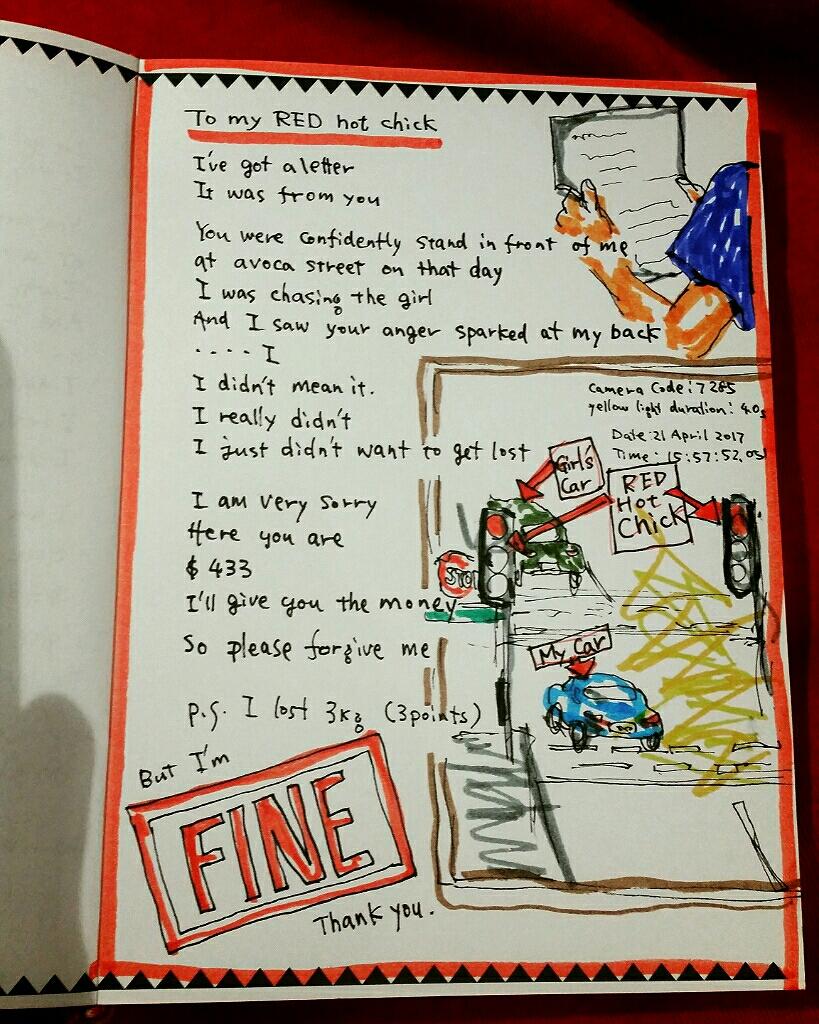 To my RED hot chick
I've got a letter
It was from you
You were confidently stand in front of me
at avoca street on that day
I was chasing the girl
And I saw your anger sparked at my back
.... I
I didn't mean it.
I really didn't
I just didn't want to get lost
Camera Code: 7285
yellow light duration: 4.0s
Date: 21 April 2017
Time: 15:57:52.05
Girls
Car
RED
Hot
Chick
STOP
My Car
I am very sorry
Here you are
$ 433
I'll give you the money
So please forgive me
P.S. I lost 3kg (3points)
But I'm
FINE
Thank you.